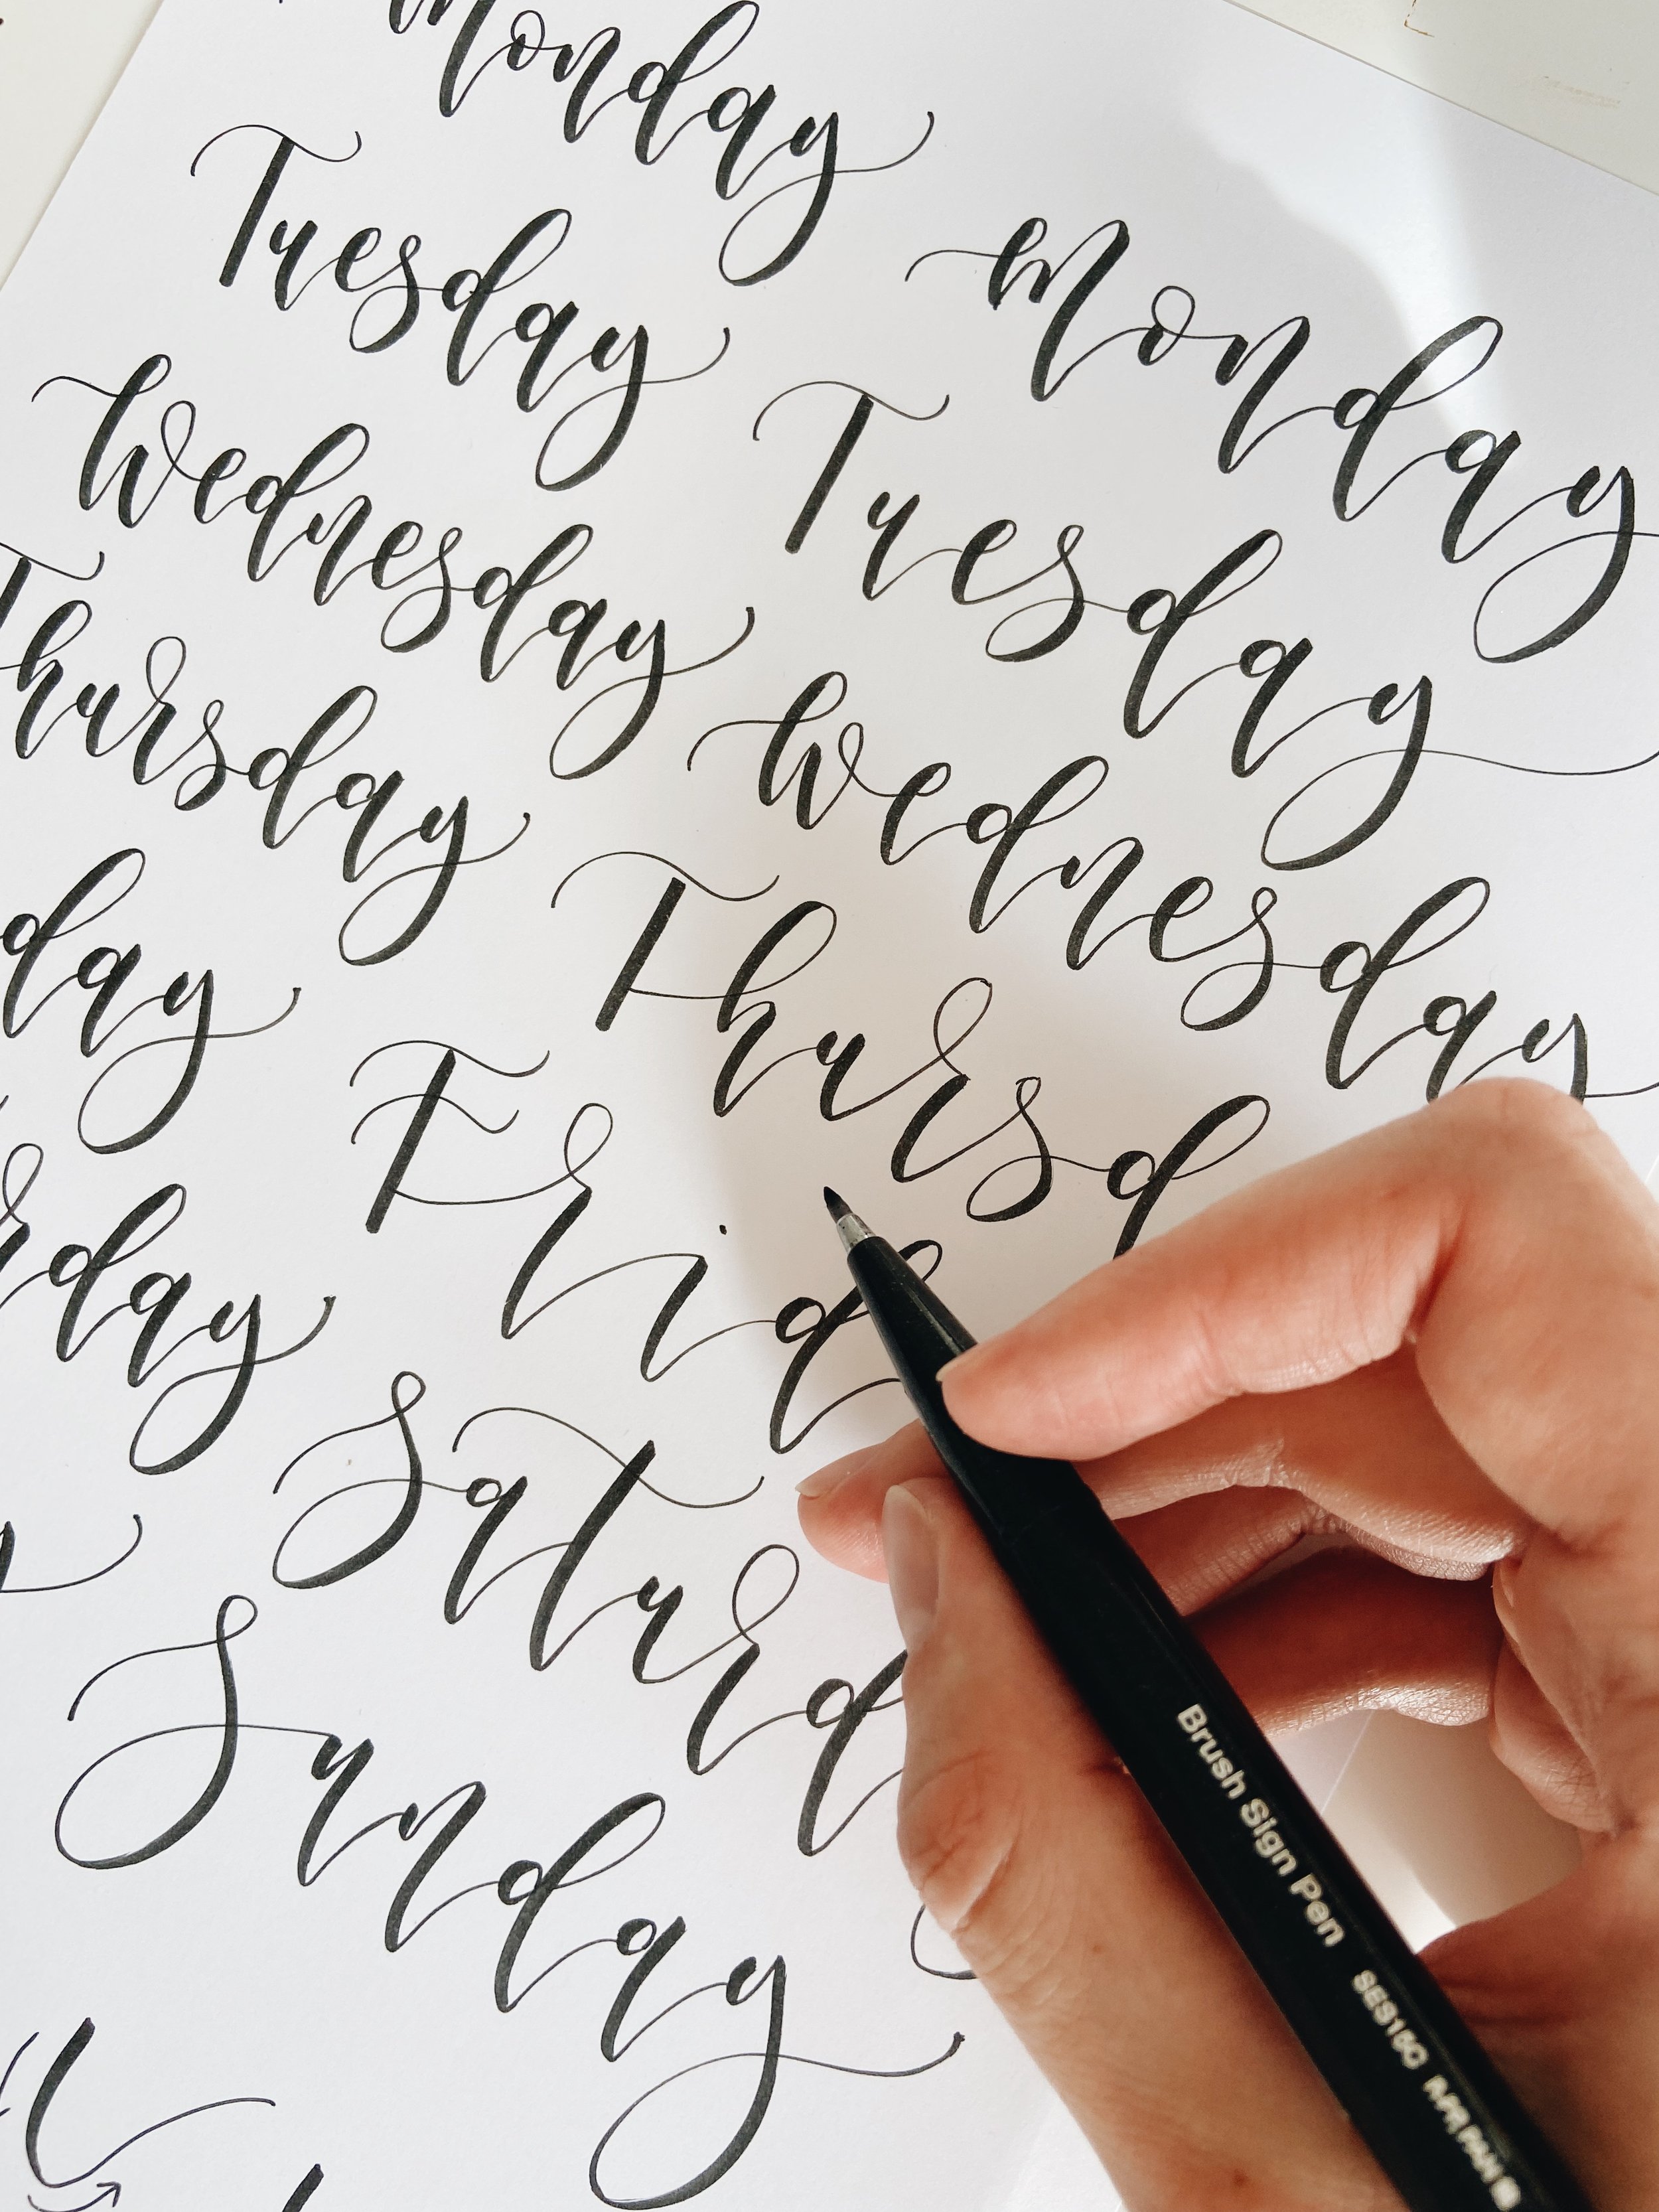 Monday
Tuesday
Wednesday
Thursday
day
day
Monday
Tuesday
Wednesday
Thursd
Frid
Saturd
Sunday
Brush Sign Pen SES15C